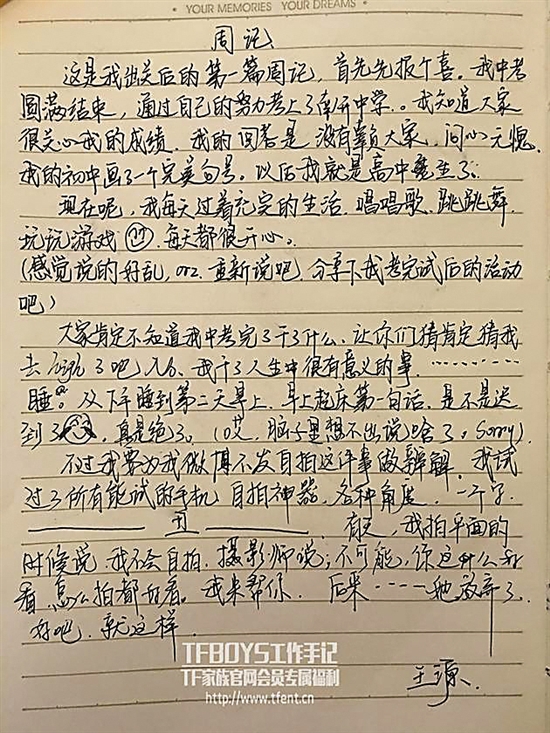 • YOUR MEMORIES YOUR DREAMS •
周记
这是我出关后的第一篇周记，首先先报个喜。我中考
圆满结束，通过自己的努力考上了南开中学。我知道大家
很关心我的成绩，我的回答是没有辜负大家，问心无愧
我的初中画了一个完美句号。以后我就是高中生了。
现在呢，我每天过着充实的生活，唱唱歌、跳跳舞
玩玩游戏 每天都很开心。
(感觉说的好乱，orz. 重新说吧，分享下我考完试后的活动
吧)
大家肯定不知道我中考完了干了什么，让你们猜肯定猜我
去high了吧 No. 我干了人生中很有意义的事………
睡。从下午睡到第二天早上，早上起床第一句话，是不是迟
到了 真是绝了。(哎，脑子里想不出说啥了，Sorry)
不过我要为我微博不发自拍这件事做辩解，我试
过了所有能试的手机 自拍神器，各种角度，一个字
丑 有天，我拍平面的
时候说，我不会自拍，摄影师说：不可能，你这什么
看，怎么拍都好看。我来帮你，后来……她放弃了
好吧，就这样
王源
TFBOYS工作手记
TF家族官网会员专属福利
http://www.tfent.cn